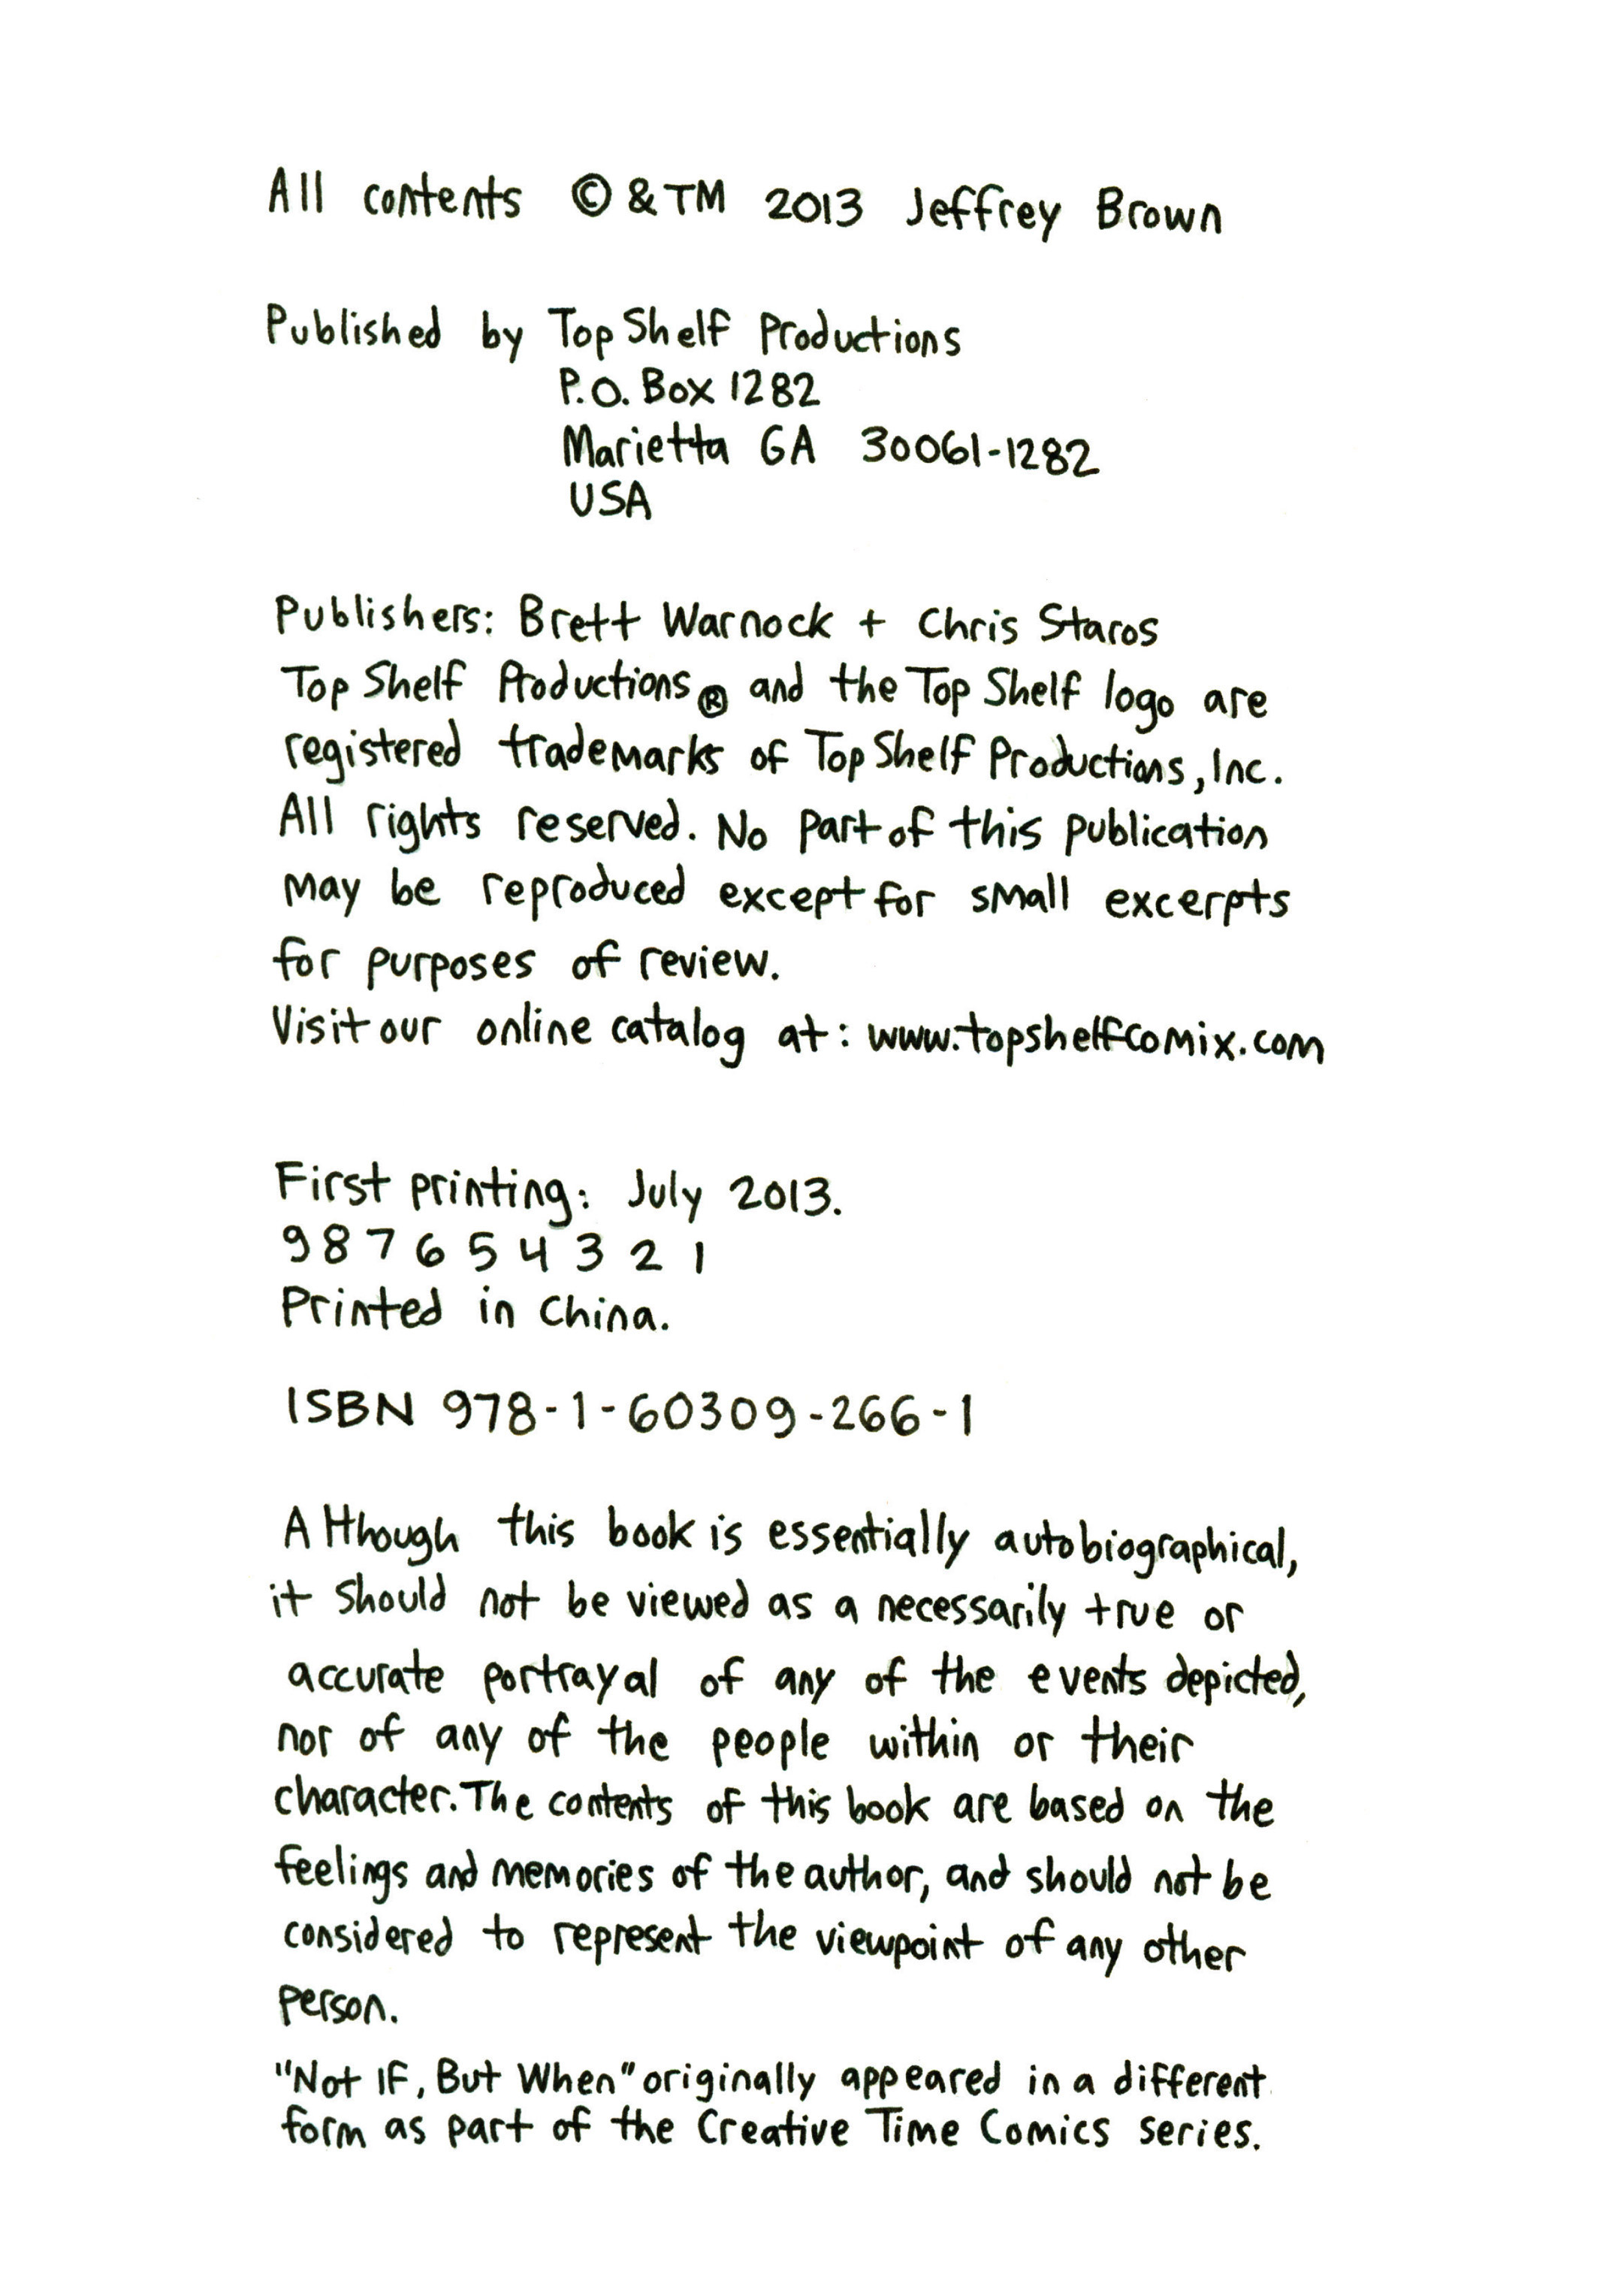 All contents © & TM 2013 Jeffrey Brown
Published by Top Shelf Productions
P.O. Box 1282
Marietta GA 30061-1282
USA
Publishers: Brett Warnock + Chris Staros
Top Shelf Productions® and the Top Shelf logo are
registered trademarks of Top Shelf Productions, Inc.
All rights reserved. No part of this publication
may be reproduced except for small excerpts
for purposes of review.
Visit our online catalog at: www.topshelfcomix.com
First printing: July 2013.
9 8 7 6 5 4 3 2 1
Printed in China.
ISBN 978-1-60309-266-1
Although this book is essentially autobiographical,
it should not be viewed as a necessarily true or
accurate portrayal of any of the events depicted,
nor of any of the people within or their
character. The contents of this book are based on the
feelings and memories of the author, and should not be
considered to represent the viewpoint of any other
person.
"Not If, But When" originally appeared in a different
form as part of the Creative Time Comics series.